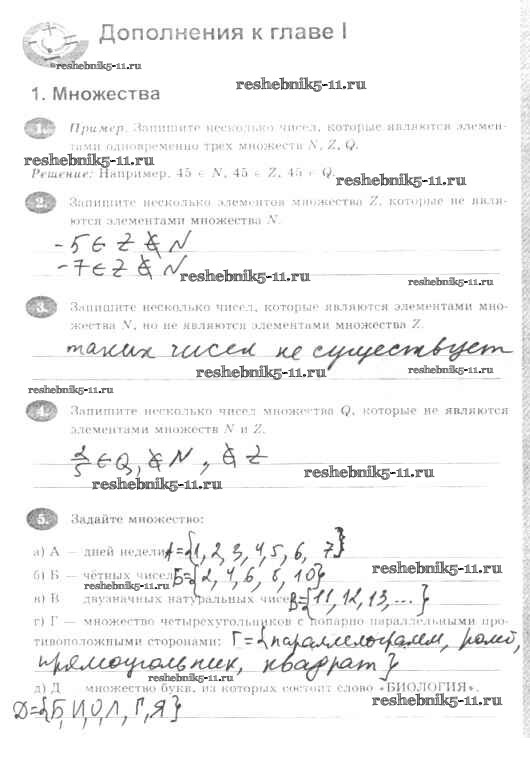 Дополнения к главе I
reshebnik5-11.ru
reshebnik5-11.ru
1. Множества
1. Пример. Запишите несколько чисел, которые являются элемен-
тами одновременно трех множеств N, Z, Q.
reshebnik5-11.ru
Решение: Например, 45 ∈ N, 45 ∈ Z, 45 ∈ Q.
reshebnik5-11.ru
2. Запишите несколько элементов множества Z, которые не явля-
ются элементами множества N.
-5 ∈ Z ∉ N
-7 ∈ Z ∉ N
reshebnik5-11.ru
reshebnik5-11.ru
3. Запишите несколько чисел, которые являются элементами мно-
жества N, но не являются элементами множества Z.
таких чисел не существует
reshebnik5-11.ru
reshebnik5-11.ru
reshebnik5-11.ru
4. Запишите несколько чисел множества Q, которые не являются
элементами множеств N и Z.
2/5 ∈ Q, ∉ N, ∉ Z
reshebnik5-11.ru
reshebnik5-11.ru
5. Задайте множество:
reshebnik5-11.ru
а) А — дней недели А={1, 2, 3, 4, 5, 6, 7}
б) Б — чётных чисел Б={2, 4, 6, 8, 10}
reshebnik5-11.ru
reshebnik5-11.ru
в) В — двузначных натуральных чисел В={11, 12, 13, ...}
г) Г — множество четырехугольников с попарно параллельными про-
тивоположными сторонами: Г={параллелограмм, ромб,
прямоугольник, квадрат}
reshebnik5-11.ru
д) Д — множество букв, из которых состоит слово «БИОЛОГИЯ».
Д={Б, И, О, Л, Г, Я}
reshebnik5-11.ru
reshebnik5-11.ru